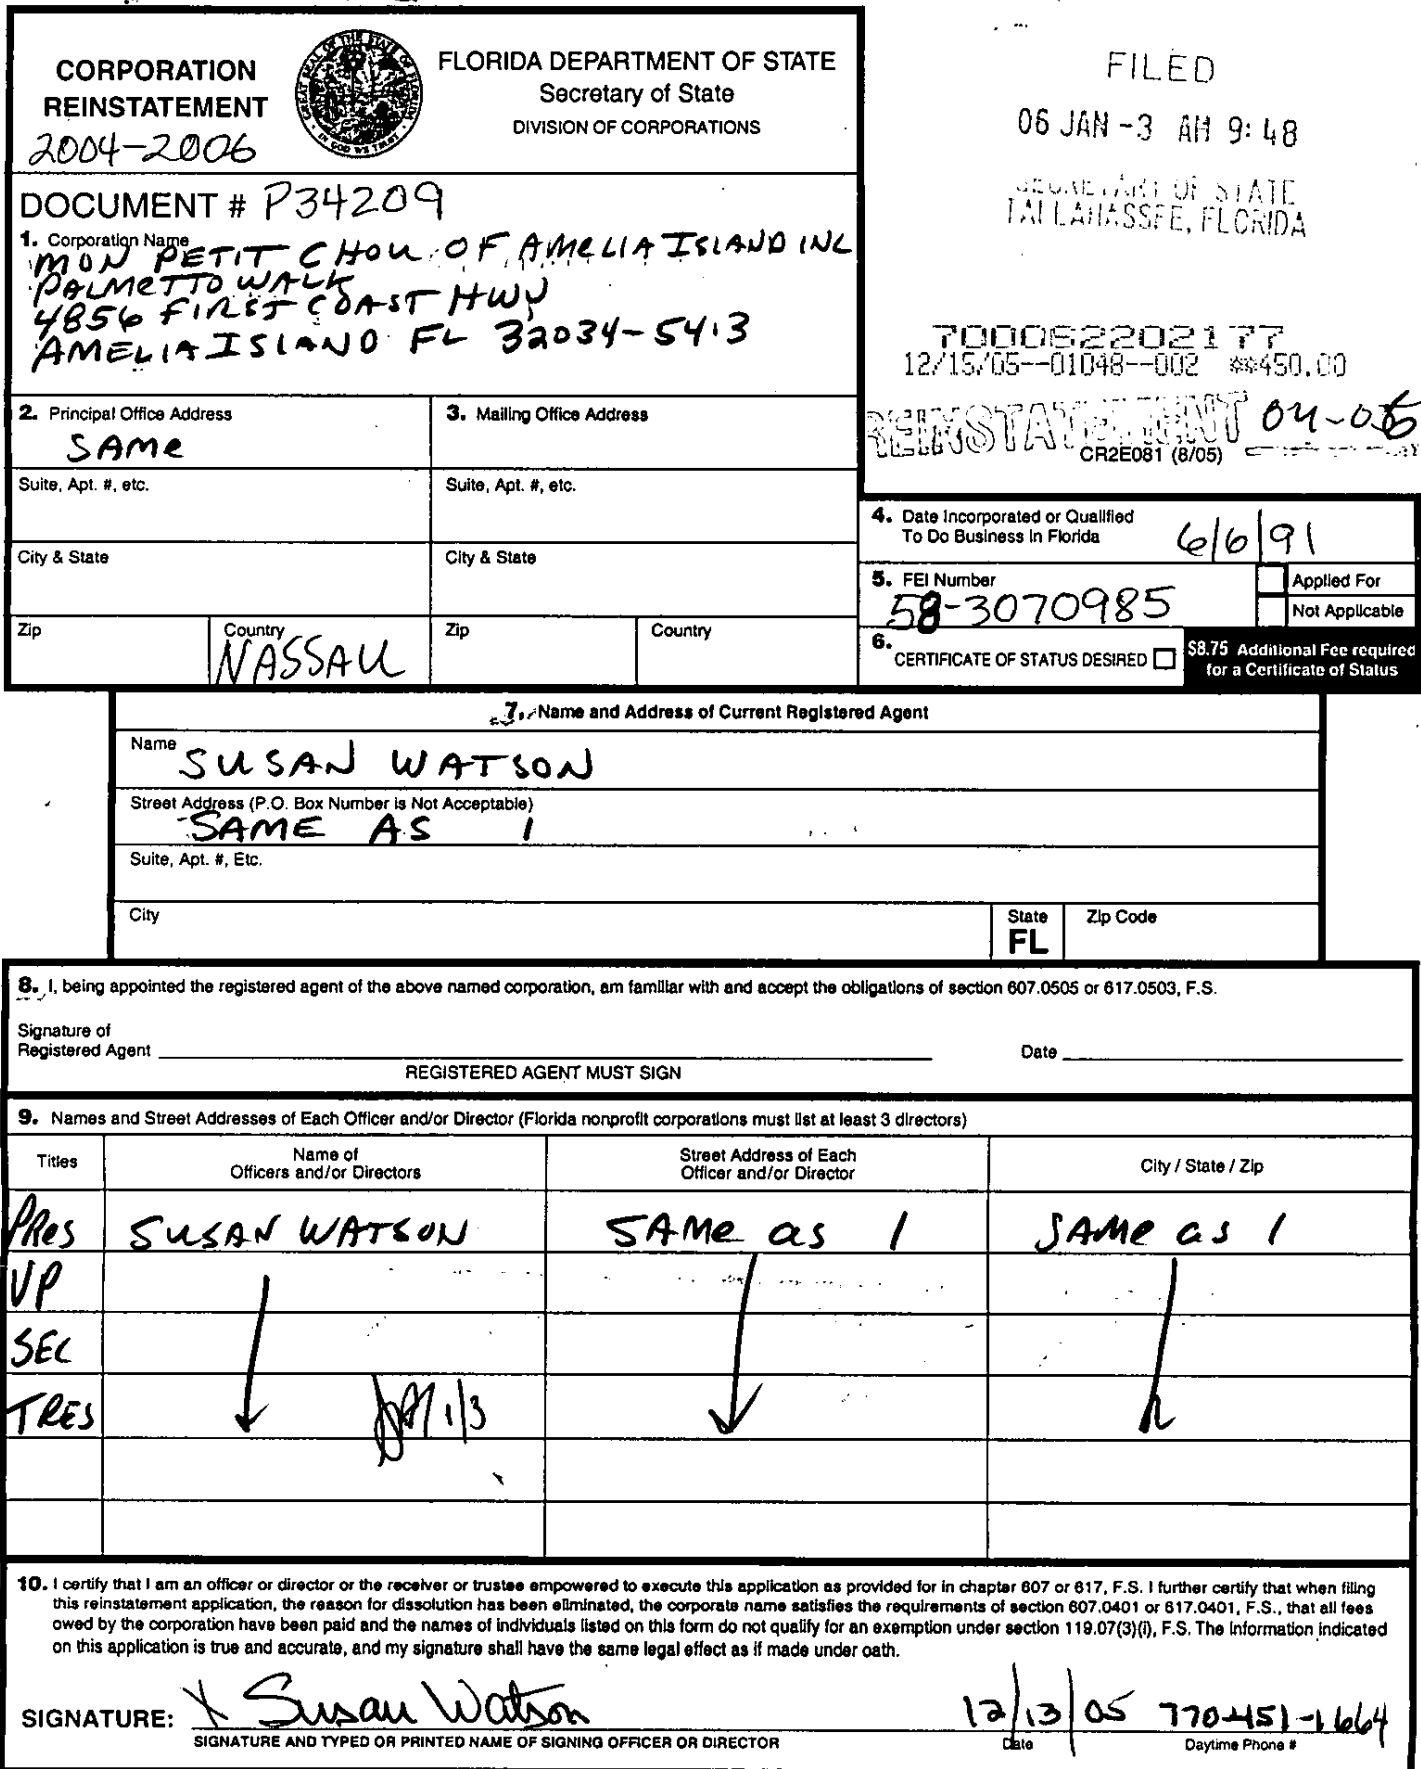 CORPORATION
REINSTATEMENT
2004-2006
GREAT SEAL OF THE STATE OF FLORIDA
IN GOD WE TRUST
FLORIDA DEPARTMENT OF STATE
Secretary of State
DIVISION OF CORPORATIONS
FILED
06 JAN -3 AM 9:48
SECRETARY OF STATE
TALLAHASSEE, FLORIDA
DOCUMENT # P34209
1. Corporation Name
MON PETIT CHOU OF AMELIA ISLAND INC
PALMETTO WALK
4856 FIRST COAST HWY
AMELIA ISLAND FL 32034-5413
700062202177
12/15/05--01048--002 **450.00
REINSTATEMENT 04-06
CR2E081 (8/05)
2. Principal Office Address
SAME
3. Mailing Office Address
Suite, Apt. #, etc.
Suite, Apt. #, etc.
City & State
City & State
Zip
Country
NASSAU
Zip
Country
4. Date Incorporated or Qualified
To Do Business in Florida
6/6/91
5. FEI Number
58-3070985
Applied For
Not Applicable
6.
CERTIFICATE OF STATUS DESIRED
$8.75 Additional Fee required
for a Certificate of Status
7. Name and Address of Current Registered Agent
Name
SUSAN WATSON
Street Address (P.O. Box Number is Not Acceptable)
SAME AS 1
Suite, Apt. #, Etc.
City
State
FL
Zip Code
8. I, being appointed the registered agent of the above named corporation, am familiar with and accept the obligations of section 607.0505 or 617.0503, F.S.
Signature of
Registered Agent
Date
REGISTERED AGENT MUST SIGN
9. Names and Street Addresses of Each Officer and/or Director (Florida nonprofit corporations must list at least 3 directors)
Titles
Name of
Officers and/or Directors
Street Address of Each
Officer and/or Director
City / State / Zip
PRes SUSAN WATSON SAMe as 1 SAMe as 1
VP
SEC
TRES
1/3
10. I certify that I am an officer or director or the receiver or trustee empowered to execute this application as provided for in chapter 607 or 617, F.S. I further certify that when filing
this reinstatement application, the reason for dissolution has been eliminated, the corporate name satisfies the requirements of section 607.0401 or 617.0401, F.S., that all fees
owed by the corporation have been paid and the names of individuals listed on this form do not qualify for an exemption under section 119.07(3)(i), F.S. The information indicated
on this application is true and accurate, and my signature shall have the same legal effect as if made under oath.
SIGNATURE: X Susan Watson 12/13/05 770-451-1664
SIGNATURE AND TYPED OR PRINTED NAME OF SIGNING OFFICER OR DIRECTOR
Date
Daytime Phone #